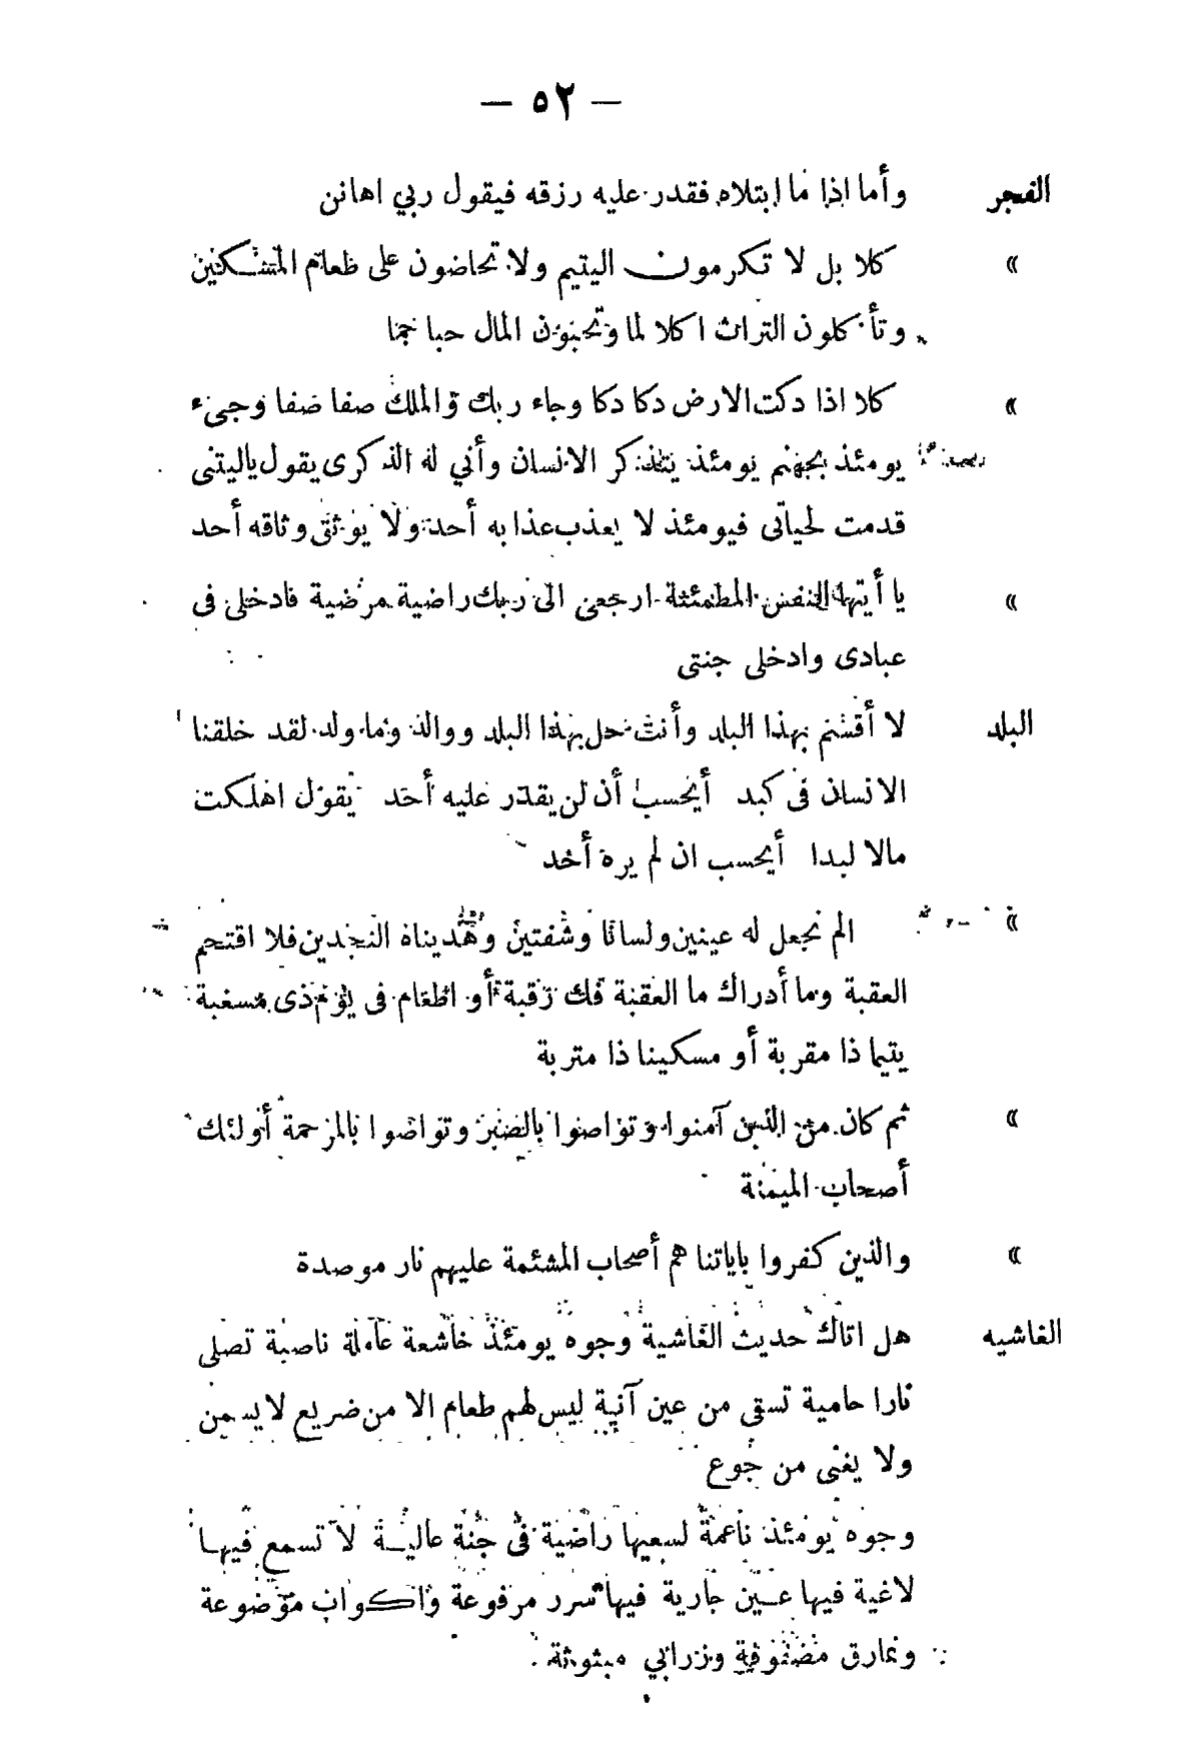 — ٥٢ —
الفجر وأما اذا ما ابتلاه فقدر عليه رزقه فيقول ربي اهانن
» كلا بل لا تكرمون اليتيم ولا تحاضون على طعام المسكين
وتأكلون التراث اكلا لما وتحبون المال حبا جما
» كلا اذا دكت الارض دكا دكا وجاء ربك والملك صفا صفا وجىء
يومئذ بجهنم يومئذ يتذكر الانسان وأني له الذكرى يقول ياليتنى
قدمت لحياتى فيومئذ لا يعذب عذابه أحد ولا يوثق وثاقه أحد
» يا أيتها النفس المطمئنة ارجعى الى ربك راضية مرضية فادخلى فى
عبادى وادخلى جنتى
البلد لا أقسم بهذا البلد وأنت حل بهذا البلد ووالد وما ولد لقد خلقنا
الانسان فى كبد أيحسب أن لن يقدر عليه أحد يقول اهلكت
مالا لبدا أيحسب ان لم يره أحد
» الم نجعل له عينين ولسانا وشفتين وهديناه النجدين فلا اقتحم
العقبة وما أدراك ما العقبة فك رقبة أو اطعام فى يوم ذى مسغبة
يتيما ذا مقربة أو مسكينا ذا متربة
» ثم كان من الذين آمنوا وتواصوا بالصبر وتواصوا بالمرحمة أولئك
أصحاب الميمنة
» والذين كفروا باياتنا هم أصحاب المشئمة عليهم نار موصدة
الغاشيه هل اتاك حديث الغاشية وجوه يومئذ خاشعة عاملة ناصبة تصلى
نارا حامية تسقى من عين آنية ليس لهم طعام الا من ضريع لا يسمن
ولا يغنى من جوع
وجوه يومئذ ناعمة لسعيها راضية فى جنة عالية لا تسمع فيها
لاغية فيها عين جارية فيها سرر مرفوعة واكواب موضوعة
ونمارق مصفوفة وزرابي مبثوثة .